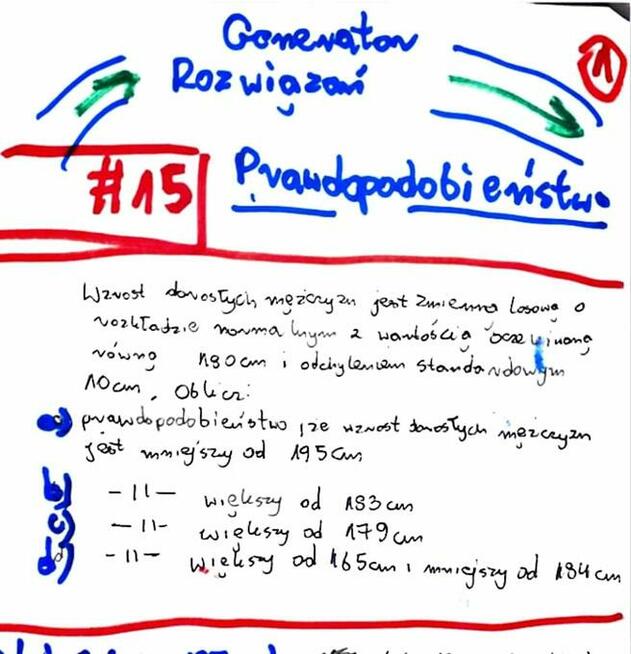 Generator
Rozwiązań
1
#15
Prawdopodobieństwo
Wzrost dorosłych mężczyzn jest zmienną losową o
rozkładzie normalnym z wartością oczekiwaną
równą 180cm i odchyleniem standardowym
10cm. Oblicz:
a) prawdopodobieństwo, że wzrost dorosłych mężczyzn
jest mniejszy od 195cm
b) -||- większy od 183cm
c) -||- większy od 179cm
d) -||- większy od 165cm i mniejszy od 184cm